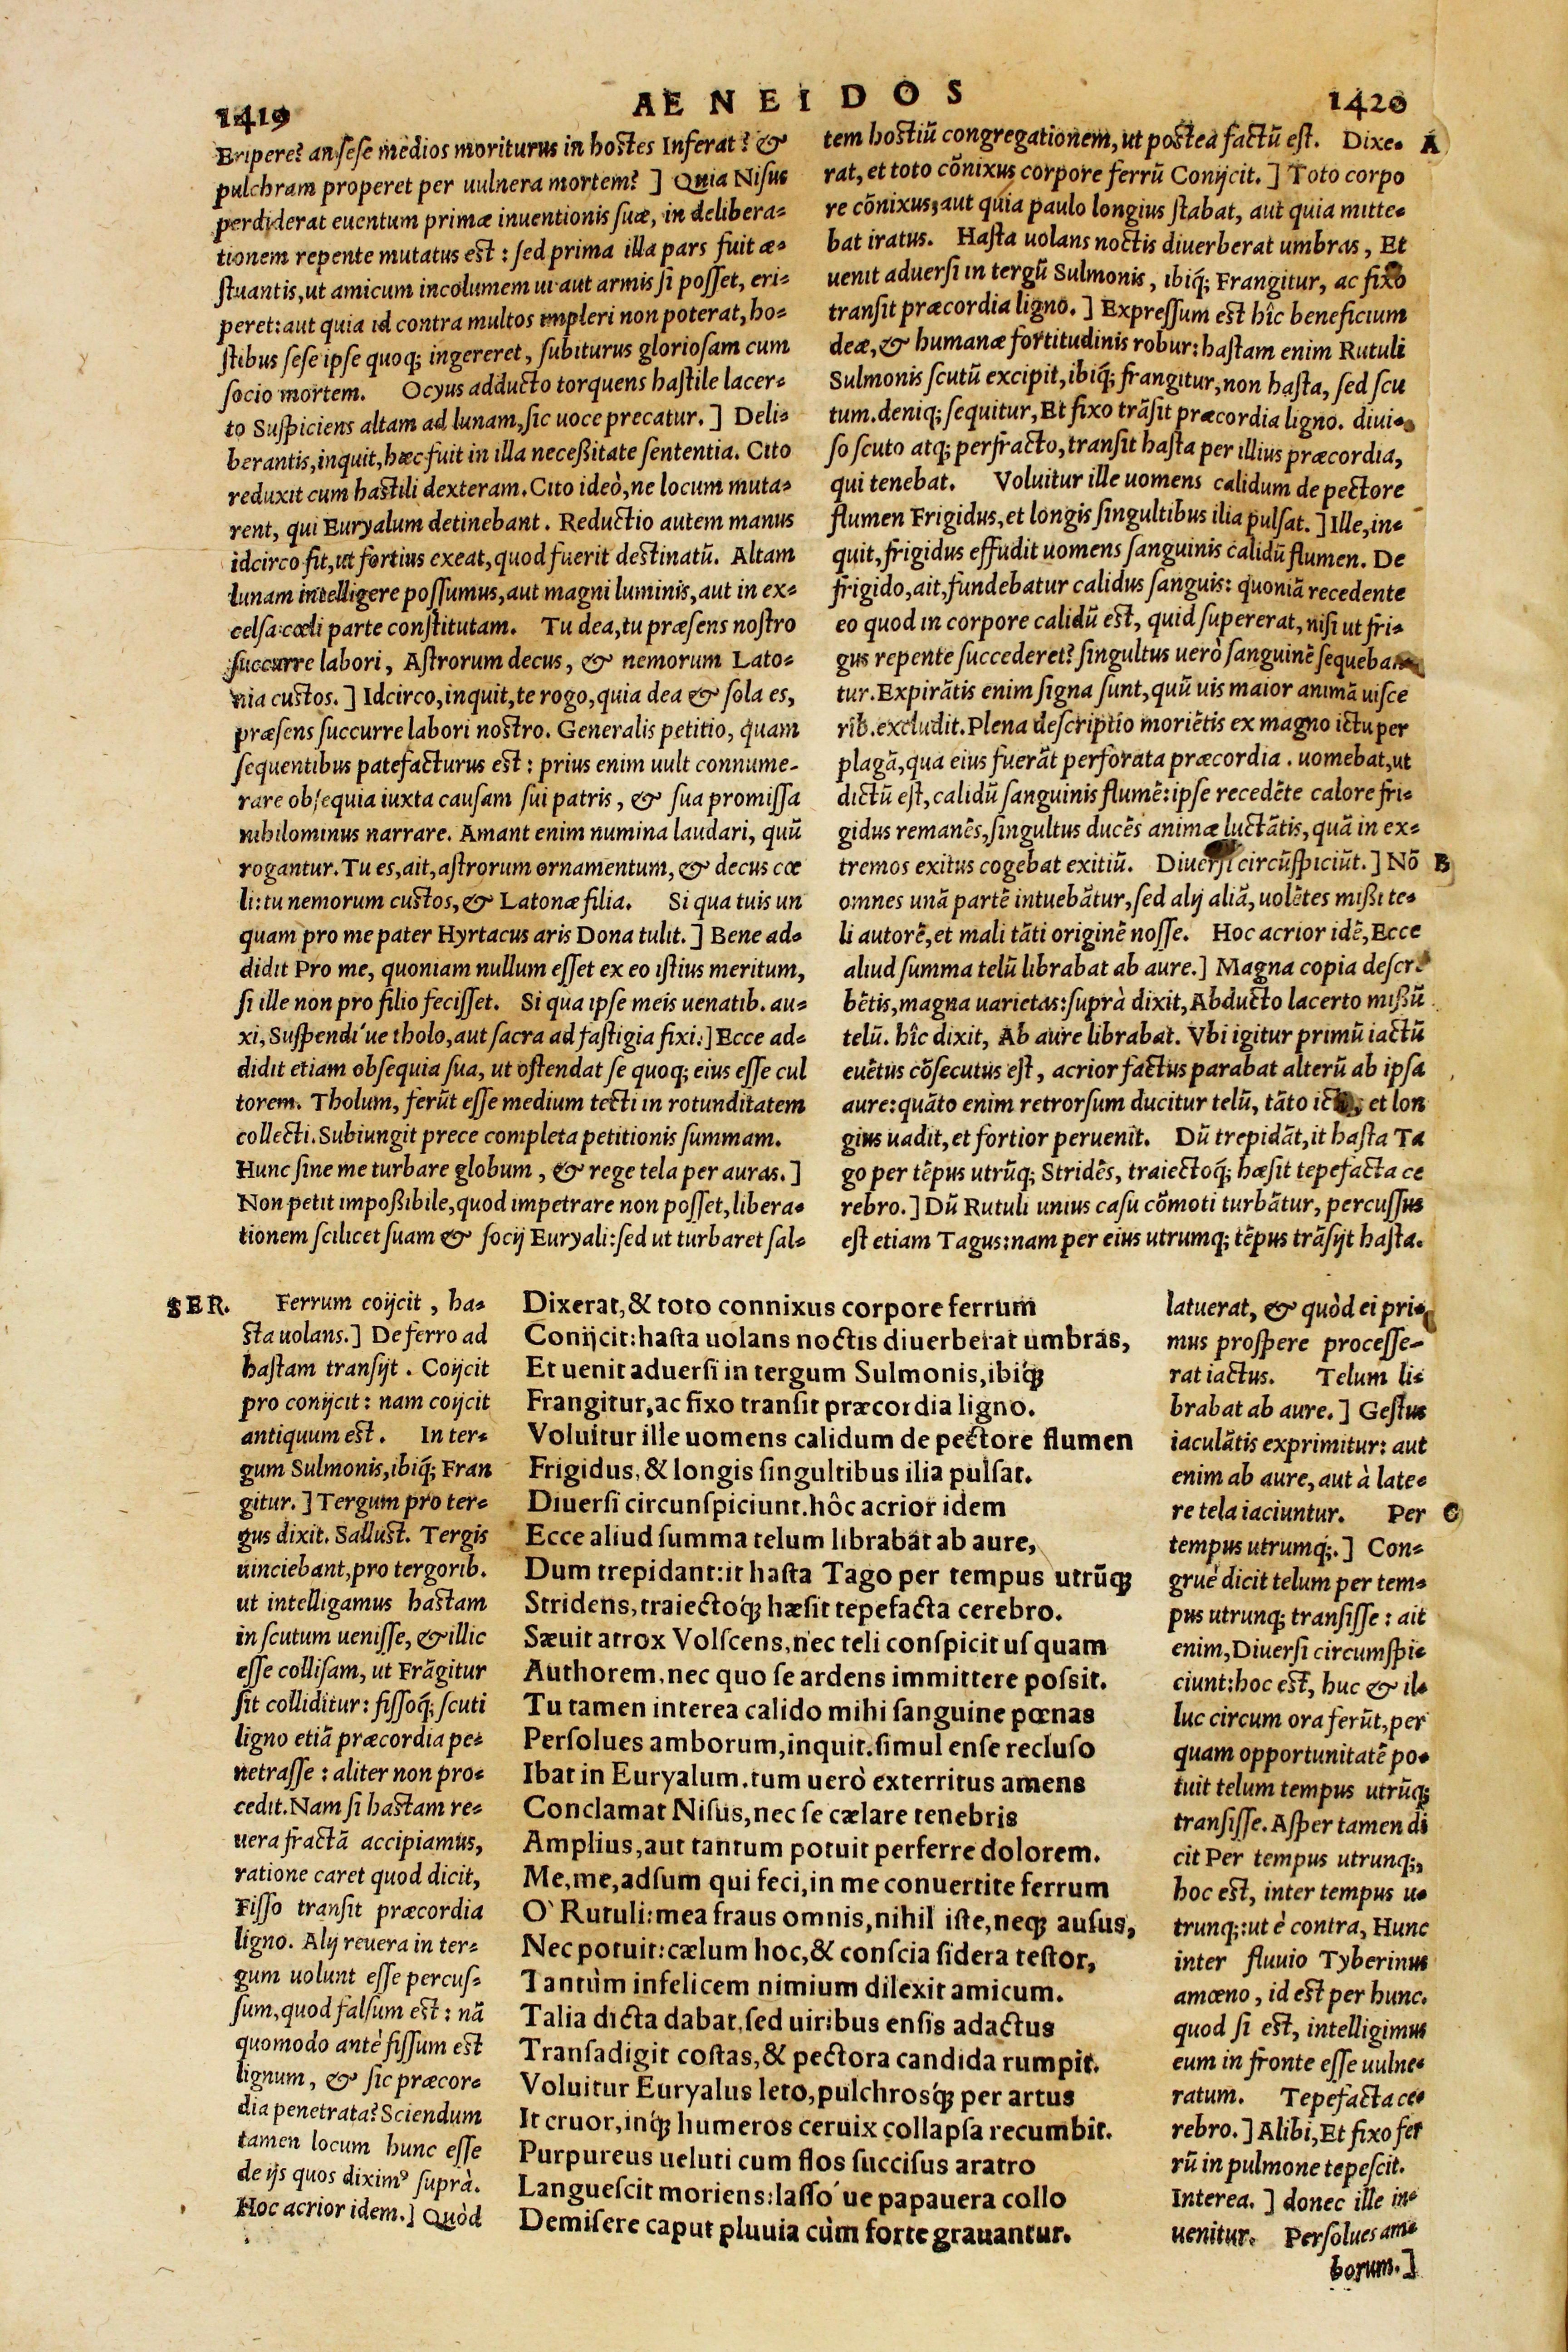 1419
AENEIDOS
1420
Eripere? an sese medios moriturus in hostes Inferat? &
pulchram properet per uulnera mortem? ] Quia Nisus
perdiderat euentum primæ inuentionis suæ, in delibera=
tionem repente mutatus est : sed prima illa pars fuit æ=
stuantis, ut amicum incolumem ui aut armis si posset, eri=
peret: aut quia id contra multos impleri non poterat, ho=
stibus sese ipse quoq; ingereret, subiturus gloriosam cum
socio mortem. Ocyus adducto torquens hastile lacer=
to Suspiciens altam ad lunam, sic uoce precatur. ] Deli=
berantis, inquit, hæc fuit in illa necessitate sententia. Cito
reduxit cum hastili dexteram. Cito ideò, ne locum muta=
rent, qui Euryalum detinebant. Reductio autem manus
idcirco fit, ut fortius exeat, quod fuerit destinatũ. Altam
lunam intelligere possumus, aut magni luminis, aut in ex=
celsa cœli parte constitutam. Tu dea, tu præsens nostro
succurre labori, Astrorum decus, & nemorum Lato=
nia custos. ] Idcirco, inquit, te rogo, quia dea & sola es,
præsens succurre labori nostro. Generalis petitio, quam
sequentibus patefacturus est : prius enim uult connume-
rare obsequia iuxta causam sui patris, & sua promissa
nihilominus narrare. Amant enim numina laudari, quũ
rogantur. Tu es, ait, astrorum ornamentum, & decus cœ
li: tu nemorum custos, & Latonæ filia. Si qua tuis un
quam pro me pater Hyrtacus aris Dona tulit. ] Bene ad=
didit Pro me, quoniam nullum esset ex eo istius meritum,
si ille non pro filio fecisset. Si qua ipse meis uenatib. au=
xi, Suspendi´ue tholo, aut sacra ad fastigia fixi. ] Ecce ad=
didit etiam obsequia sua, ut ostendat se quoq; eius esse cul
torem. Tholum, ferũt esse medium tecti in rotunditatem
collecti. Subiungit prece completa petitionis summam.
Hunc sine me turbare globum, & rege tela per auras. ]
Non petit impossibile, quod impetrare non posset, libera=
tionem scilicet suam & socij Euryali: sed ut turbaret sal=
tem hostiũ congregationem, ut postea factũ est. Dixe= A
rat, et toto cõnixus corpore ferrũ Conijcit. ] Toto corpo
re cõnixus, aut quia paulo longius stabat, aut quia mitte=
bat iratus. Hasta uolans noctis diuerberat umbras, Et
uenit aduersi in tergũ Sulmonis, ibiq́; Frangitur, ac fixo
transit præcordia ligno. ] Expressum est hîc beneficium
deæ, & humanæ fortitudinis robur: hastam enim Rutuli
Sulmonis scutũ excipit, ibiq́; frangitur, non hasta, sed scu
tum. deniq; sequitur, Et fixo trãsit præcordia ligno. diui=
so scuto atq; perfracto, transit hasta per illius præcordia,
qui tenebat. Voluitur ille uomens calidum de pectore
flumen Frigidus, et longis singultibus ilia pulsat. ] Ille, in=
quit, frigidus effudit uomens sanguinis calidũ flumen. De
frigido, ait, fundebatur calidus sanguis: quoniã recedente
eo quod in corpore calidũ est, quid supererat, nisi ut fri=
gus repente succederet? singultus uerò sanguinẽ sequeban
tur. Expirãtis enim signa sunt, quũ uis maior animã uisce
rib. excludit. Plena descriptio moriẽtis ex magno ictu per
plagã, qua eius fuerãt perforata præcordia. uomebat, ut
dictũ est, calidũ sanguinis flumẽ: ipse recedẽte calore fri=
gidus remanẽs, singultus ducẽs animæ luctãtis, quã in ex=
tremos exitus cogebat exitiũ. Diuersi circũspiciũt. ] Nõ B
omnes unã partẽ intuebãtur, sed alij aliã, uolẽtes missi te=
li autorẽ, et mali tãti originẽ nosse. Hoc acrior idẽ, Ecce
aliud summa telũ librabat ab aure. ] Magna copia descri
bẽtis, magna uarietas: suprà dixit, Abducto lacerto missũ
telũ. hîc dixit, Ab aure librabat. Vbi igitur primũ iactũ
euẽtus cõsecutus est, acrior factus parabat alterũ ab ipsa
aure: quãto enim retrorsum ducitur telũ, tãto et lon
gius uadit, et fortior peruenit. Dũ trepidãt, it hasta Ta
go per tẽpus utrũq; Stridẽs, traiectoq́; hæsit tepefacta ce
rebro. ] Dũ Rutuli unius casu cõmoti turbãtur, percussus
est etiam Tagus: nam per eius utrumq; tẽpus trãsijt hasta.
SER. Ferrum coijcit, ha=
sta uolans. ] De ferro ad
hastam transijt. Coijcit
pro conijcit : nam coijcit
antiquum est. In ter=
gum Sulmonis, ibiq́; Fran
gitur. ] Tergum pro ter=
gus dixit. Sallust. Tergis
uinciebant, pro tergorib.
ut intelligamus hastam
in scutum uenisse, & illic
esse collisam, ut Frãgitur
sit colliditur: fissoq́; scuti
ligno etiã præcordia pe=
netrasse : aliter non pro=
cedit. Nam si hastam re=
uera fractã accipiamus,
ratione caret quod dicit,
Fisso transit præcordia
ligno. Alij reuera in ter=
gum uolunt esse percus=
sum, quod falsum est : nã
quomodo antè fissum est
lignum, & sic præcor=
dia penetrata? Sciendum
tamen locum hunc esse
de ijs quos diximꝰ suprà.
Hoc acrior idem. ] Quòd
Dixerat, & toto connixus corpore ferrum
Conijcit: hasta uolans noctis diuerberat umbras,
Et uenit aduersi in tergum Sulmonis, ibiq́;
Frangitur, ac fixo transit præcordia ligno.
Voluitur ille uomens calidum de pectore flumen
Frigidus, & longis singultibus ilia pulsat.
Diuersi circunspiciunt. hôc acrior idem
Ecce aliud summa telum librabat ab aure,
Dum trepidant: it hasta Tago per tempus utrũq;
Stridens, traiectoq́; hæsit tepefacta cerebro.
Sæuit atrox Volscens, nec teli conspicit usquam
Authorem, nec quo se ardens immittere possit.
Tu tamen interea calido mihi sanguine pœnas
Persolues amborum, inquit. simul ense recluso
Ibat in Euryalum. tum uerò exterritus amens
Conclamat Nisus, nec se cælare tenebris
Amplius, aut tantum potuit perferre dolorem.
Me, me, adsum qui feci, in me conuertite ferrum
O` Rutuli: mea fraus omnis, nihil iste, neq; ausus,
Nec potuit: cælum hoc, & conscia sidera testor,
Tantùm infelicem nimium dilexit amicum.
Talia dicta dabat, sed uiribus ensis adactus
Transadigit costas, & pectora candida rumpit.
Voluitur Euryalus leto, pulchrosq́; per artus
It cruor, inq́; humeros ceruix collapsa recumbit.
Purpureus ueluti cum flos succisus aratro
Languescit moriens: lasso´ue papauera collo
Demisere caput pluuia cùm forte grauantur.
latuerat, & quòd ei pri=
mus prospere processe-
rat iactus. Telum li=
brabat ab aure. ] Gestus
iaculãtis exprimitur: aut
enim ab aure, aut à late=
re tela iaciuntur. Per C
tempus utrumq;. ] Con=
gruè dicit telum per tem=
pus utrunq; transisse : ait
enim, Diuersi circumspi=
ciunt: hoc est, huc & il=
luc circum ora ferũt, per
quam opportunitatẽ po=
tuit telum tempus utrũq;
transisse. Asper tamen di
cit Per tempus utrunq;,
hoc est, inter tempus u=
trunq;: ut è contra, Hunc
inter fluuio Tyberinus
amœno, id est per hunc.
quod si est, intelligimus
eum in fronte esse uulne=
ratum. Tepefacta ce=
rebro. ] Alibi, Et fixo fer
rũ in pulmone tepescit.
Interea. ] donec ille in=
uenitur. Persolues am=
borum. ]